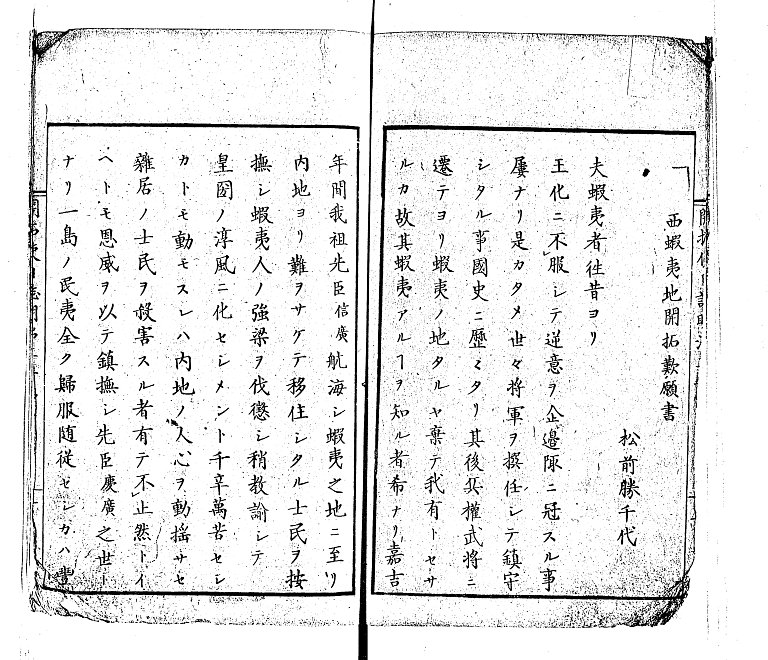 西蝦夷地開拓歎願書
松前勝千代
夫蝦夷者往昔ヨリ
王化ニ不服シテ逆意ヲ企邊陬ニ冦スル事
屢ナリ是カタメ世々将軍ヲ撰任シテ鎮守
シタル事國史ニ歴々タリ其後兵權武将ニ
遷テヨリ蝦夷ノ地タルヤ棄テ我有トセサ
ルカ故其蝦夷アルヿヲ知ル者希ナリ嘉吉
年間我祖先臣信廣航海シ蝦夷之地ニ至リ
内地ヨリ難ヲサケテ移住シタル士民ヲ按
撫シ蝦夷人ノ強梁ヲ伐懲シ稍教諭シテ
皇國ノ淳風ニ化セシメント千辛萬苦セシ
カトモ動モスレハ内地ノ人心ヲ動揺サセ
雜居ノ士民ヲ殺害スル者有テ不止然トイ
ヘトモ恩威ヲ以テ鎮撫シ先臣慶廣之世ト
ナリ一島ノ民夷全ク歸服随従セシカハ豐